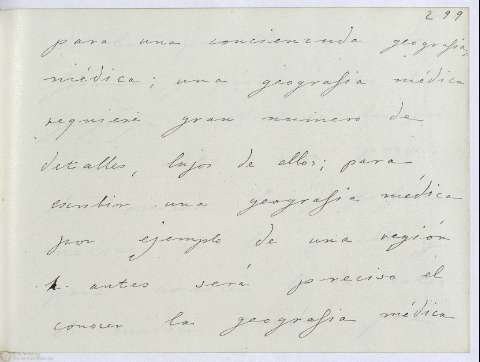 299
para una concienzuda geografia
médica; una geografia médica
requiere gran numero de
detalles, lujos de ellos; para
escribir una geografia médica
por ejemplo de una región
antes será preciso él
conocer la geografia médica